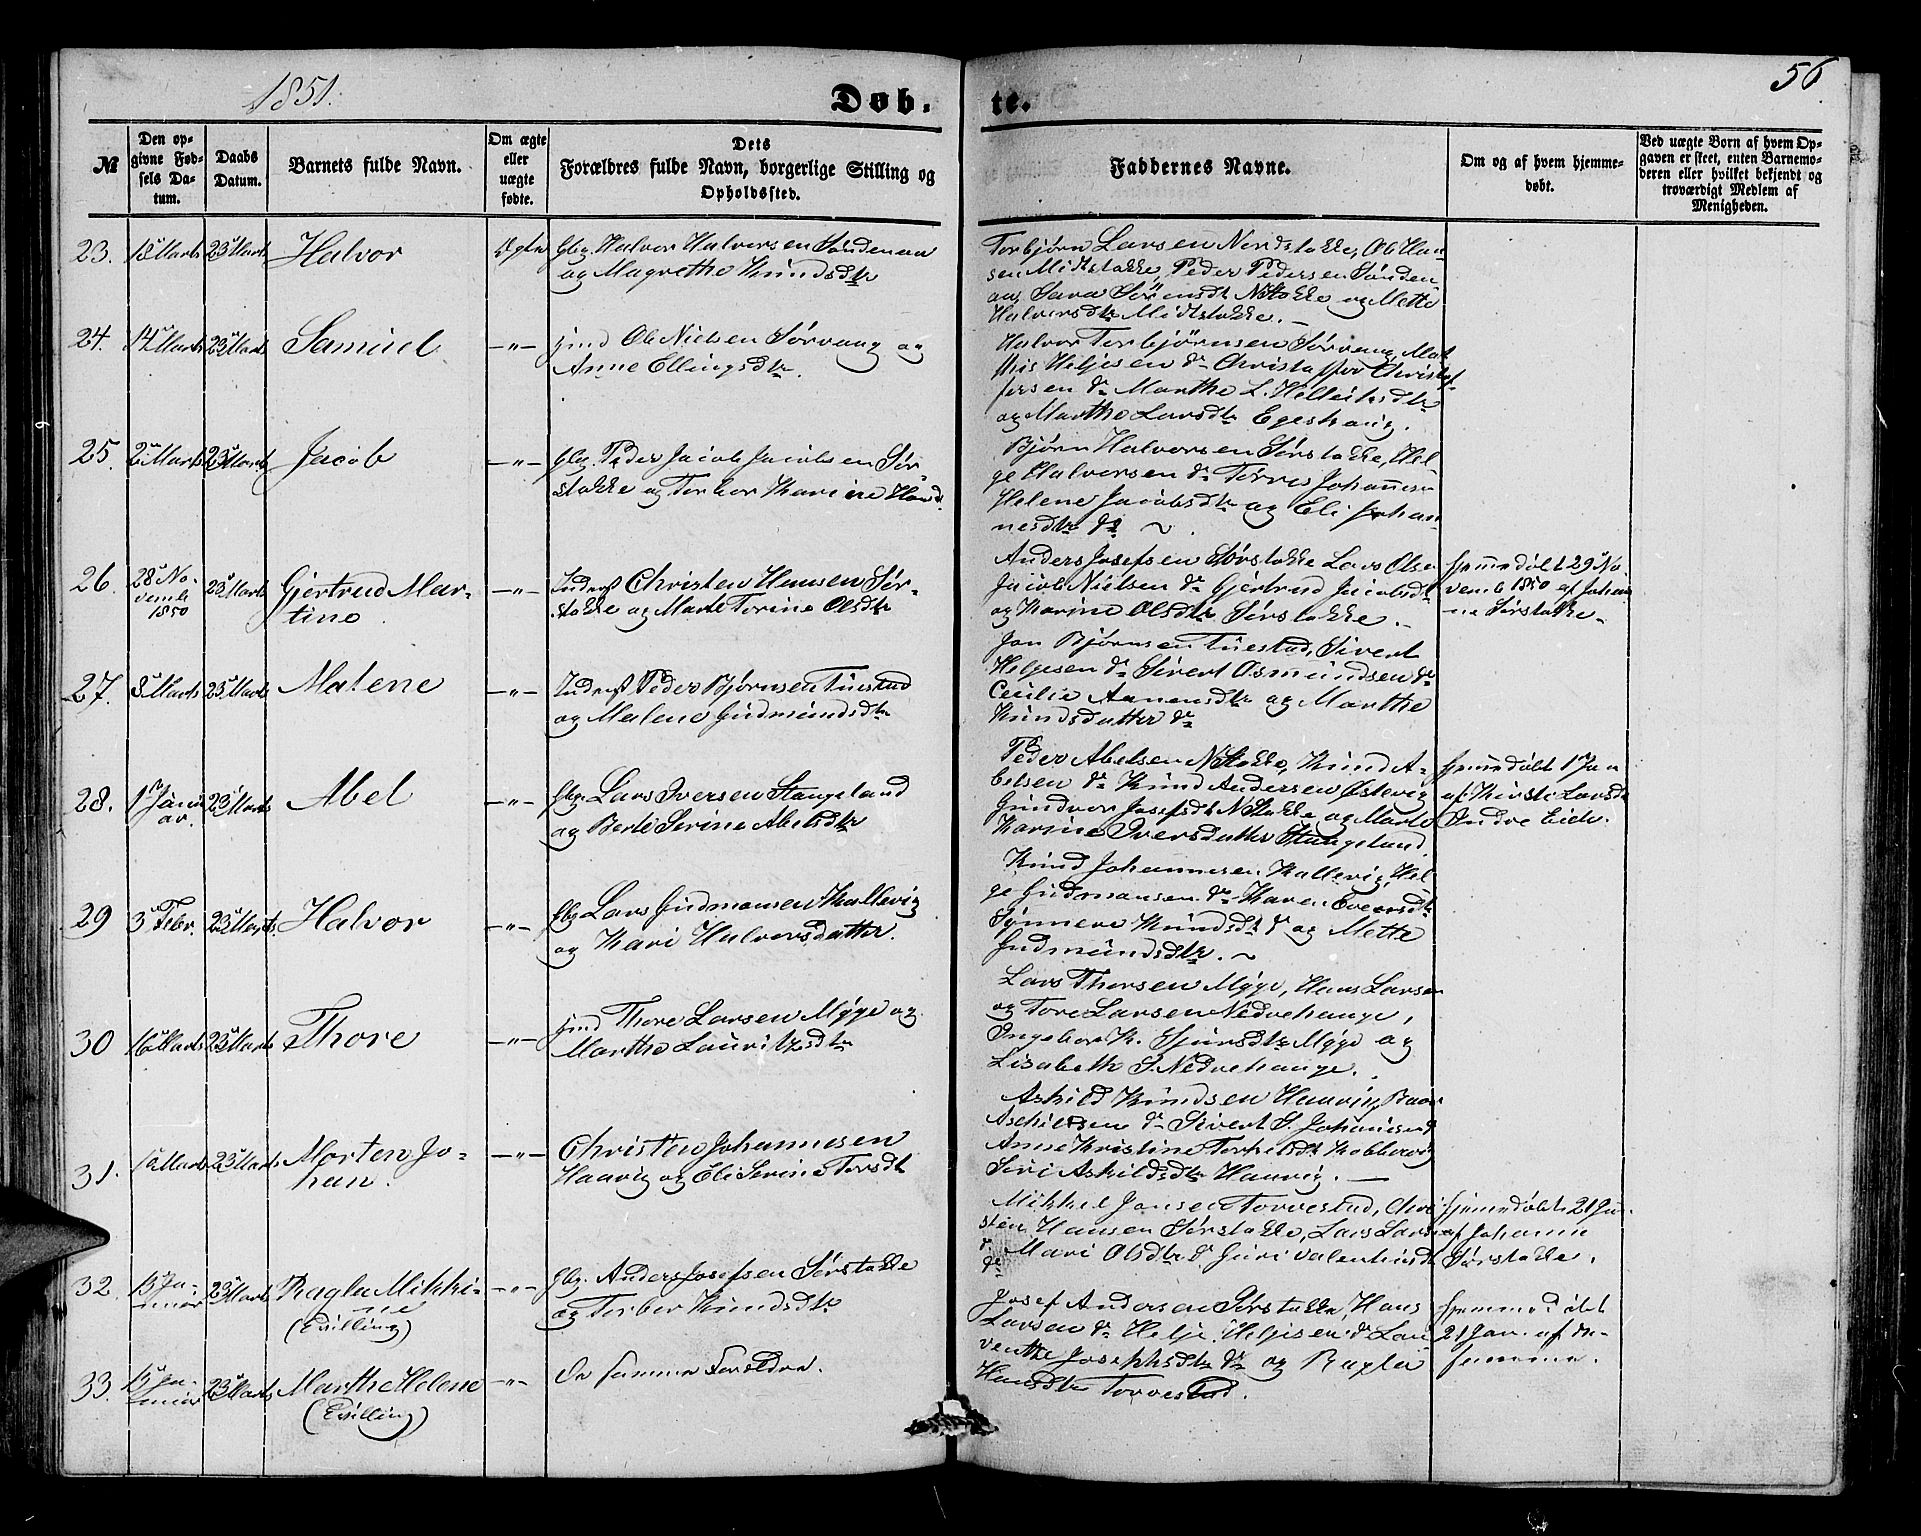 1851.
Døb.
te.
56
№
Den opgivne Fødsels Datum.
Daabs Datum.
Barnets fulde Navn.
Om ægte eller uægte fødte.
Dets Forældres fulde Navn, borgerlige Stilling og Opholdssted.
Faddernes Navne.
Om og af hvem hjemmedøbt.
Ved uægte Børn af hvem Opgaven er skeet, enten Barnemoderen eller hvilket bekjendt og troværdigt Medlem af Menigheden.
23. 13 Marts 23 Marts Halvor Ægte Gbr. Halvor Halvorsen Søndenaa
og Magrethe Knudsdtr
Torbjørn Larsen Nordstokke, Ob Han-
sen Midtstokke, Peder Pedersen Sønden-
aa, Sara Sørensdt N.Stokke og Mette
Halvorsdtr Midtstokke.
24. 14 Marts 23 Marts Samuel —"— Hmd Ole Nielsen Sørvaag og
Anne Ellingsdtr.
Halvor Torbjørnsen Sørvaag, Mat
this Heljesen do Christoffer Christof-
fersen do Marthe L. Helleiksdtr
og Marthe Larsdtr Egeshaug.
25. 2 Marts 23 Marts Jacob —"— Gbr. Peder Jacob Jacobsen Sør-
stokke og Torbor Karine Hansd.
Bjørn Halvorsen Sørstokke, Hel-
ge Halvorsen do Torres Johannesen
Helene Jacobsdtr og Eli Johan-
nesdtr do
26. 28 No-
vemb
1850
23 Marts Gjertrud Mar-
tine
—"— Inderst Christen Hansen Sør-
stokke og Marte Torine Olsdtr
Anders Josefsen Sørstokke Lars Olsen
Jacob Nielsen do Gjertrud Jacobsdt
og Karine Olsdtr Sørstokke.
Hjemmedøbt 29 No-
vemb 1850 af Johan-
ne Sørstokke.
27. 8 Marts 23 Marts Malene —"— Inderst Peder Bjørnsen Tuestad
og Malene Gudmundsdtr
Jon Bjørnsen Tuestad, Sivert
Helgesen do Sivert Osmundsen do
Cecilie Aanensdtr og Marthe
Knudsdatter do
28. 1 Janu-
ar.
23 Marts Abel —"— Gbr. Lars Iversen Stangeland
og Berte Serine Abelsdtr
Peder Abelsen N.Stokke, Knud A-
belsen do Knud Andersen Østevig
Gundvor Josefsdt N.Stokke og Marte
Karine Iversdatter Stangeland
Hjemmedøbt 1 Jan
af Kirsti Larsdt
Indre Eide.
29 3 Febr. 23 Marts. Halvor —"— Gbr Lars Gudmonsen Kallevig
og Kari Halvorsdatter.
Knud Johannesen Kallevig, Hel-
ge Gudmonsen do Karen Eversdt
Sønneve Knudsdt do og Mette
Gudmundsdtr.
30 16 Marts 23 Marts Thore —"— Hmd Thore Larsen Myge og
Marthe Lauritzdtr
Lars Thorsen Myge, Hans Larsen
og Tore Larsen Nedrehauge,
Ingebor K. Sjursdtr Myge og
Lisabeth S. Nedrehauge.
31. 16 Marts 23 Marts Morten Jo-
han.
—"— Christen Johannesen
Haavig og Eli Serine Torsdt
Askild Knudsen Haavig, Baar
Aschildsen do Sivert S. Johannesd
Anne Kristine Torkelsdt Kobbervig
Siri Askildsdtr Haavig.
32. 15 Ja-
nuar
23 Marts Ragla Mikki-
ne
(Tvilling)
—"— Gbr. Anders Josefsen Sørstokke
og Torber Knudsdtr
Mikkel Jonsen Torvestad, Chri-
sten Hansen Sørstokke, Lars Larsen
do Mari Olsdtr do Guri Valentinsdt
do
Hjemmedøbt 21 Jan.
af Johanne
Sørstokke.
33. 15 Ja-
nuar
23 Marts Marthe Helene
(Tvilling)
—"— De samme Foreldre.
Josef Andersen Sørstokke, Hans
Larsen do Helje Heljesen do Lau-
rentke Josephsdtr do og Ragla
Hansdtr Torvestad.
Hjemmedøbt
21 Jan. af den-
samme.